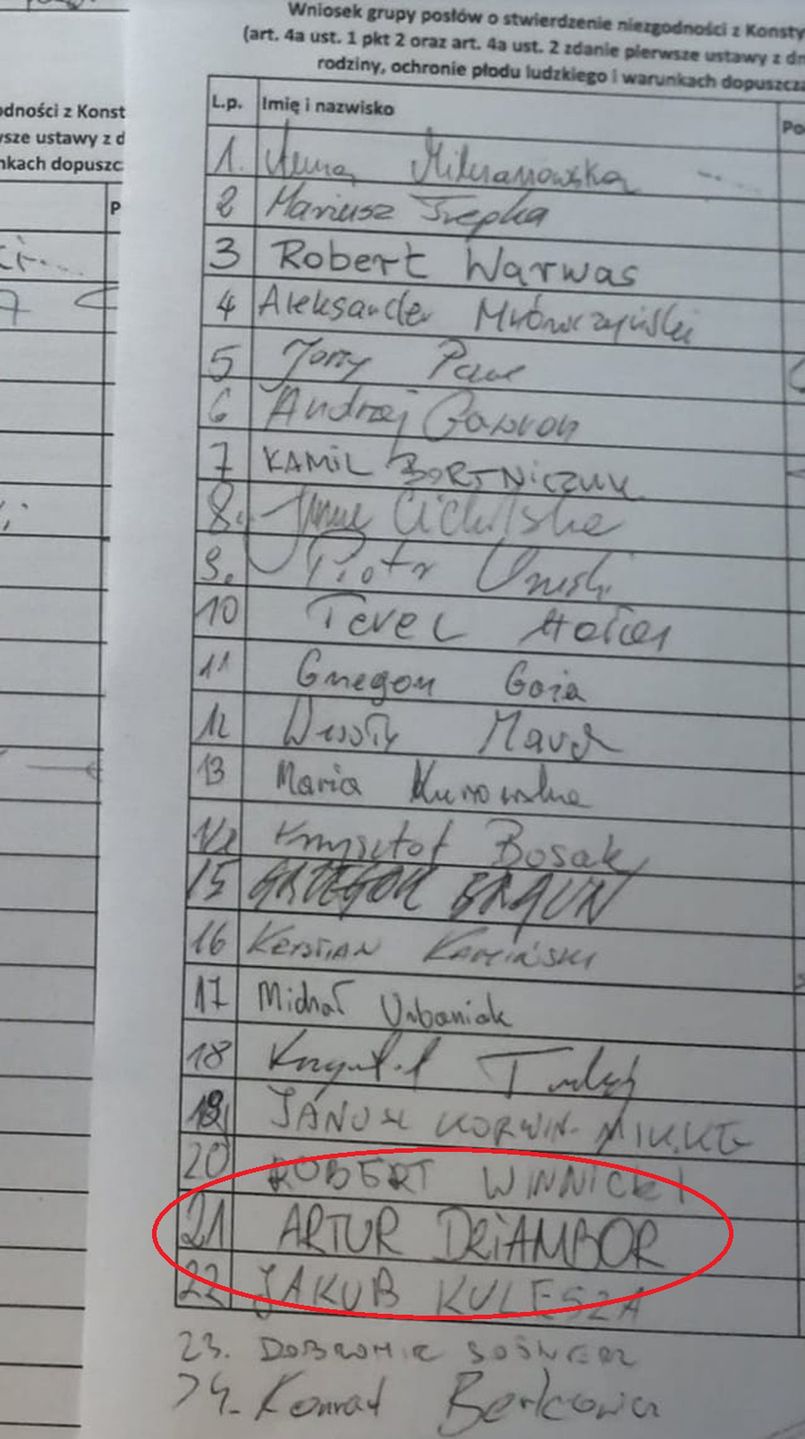 Wniosek grupy posłów o stwierdzenie niezgodności z Konsty
(art. 4a ust. 1 pkt 2 oraz art. 4a ust. 2 zdanie pierwsze ustawy z dn
rodziny, ochronie płodu ludzkiego i warunkach dopuszcza
odności z Konst
wsze ustawy z d
nkach dopuszc
P
L.p. Imię i nazwisko Po
1. Anna Milczanowska
2 Mariusz Trepka
3 Robert Warwas
4 Aleksander Mrówczyński
5 Jerzy Paul
6 Andrzej Gawron
7 KAMIL BORTNICZUK
8. Anna Cicholska
9. Piotr Uruski
10 Teresa
11 Grzegorz Gaża
12
13 Maria Kurowska
14 Krzysztof Bosak
15 GRZEGORZ BRAUN
16 KRYSTIAN KAMIŃSKI
17 Michał Urbaniak
18 Krzysztof Tuduj
19 JANUSZ KORWIN-MIKKE
20 ROBERT WINNICKI
21 ARTUR DZIAMBOR
22 JAKUB KULESZA
23. DOBROMIR SOŚNIERZ
24. Konrad Berkowicz